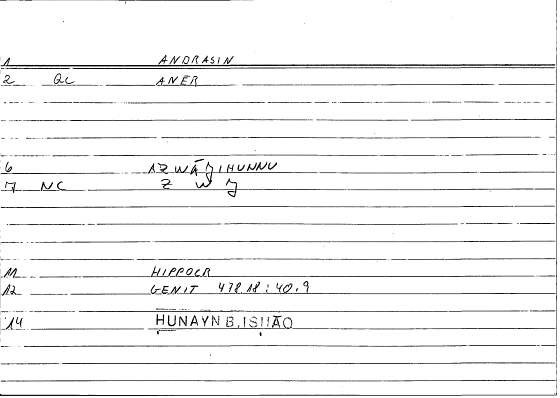 1 ANDRASIN
2 QC ANER
6 AZWĀǦIHUNNU
7 NC Z W Ǧ
11 HIPPOCR
12 GENIT 478.18:40.9
14 ḤUNAYN B. ISḤĀQ